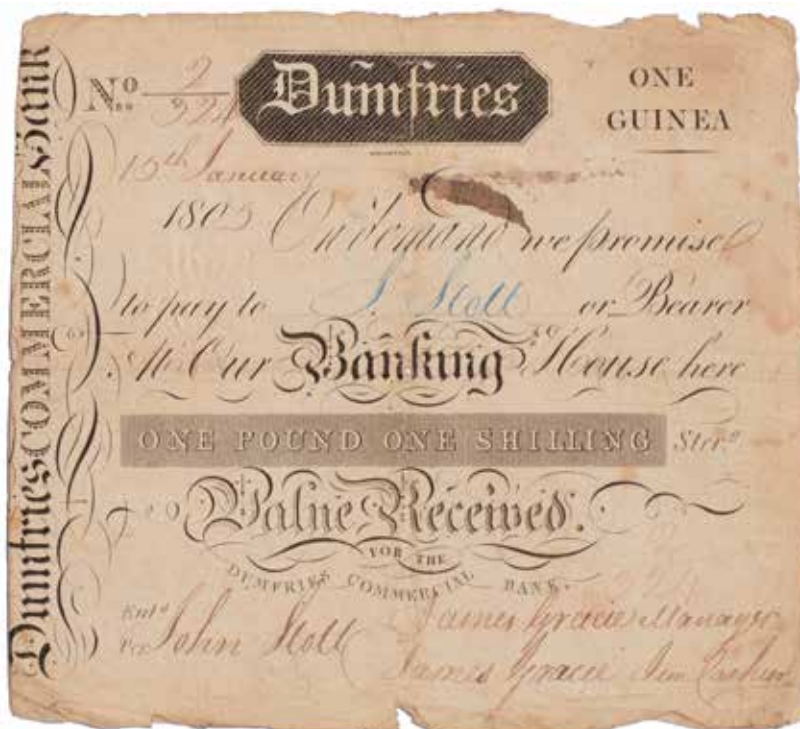 Dumfries COMMERCIAL Bank
No 2/224
Dumfries
ONE GUINEA
15th January
1805 On demand we promise
to pay to J. Stott or Bearer
At Our Banking House here
ONE POUND ONE SHILLING Sterg
Value Received.
FOR THE
DUMFRIES COMMERCIAL BANK.
Entd
John Stott
James Gracie Manager
James Gracie Jun Cashier